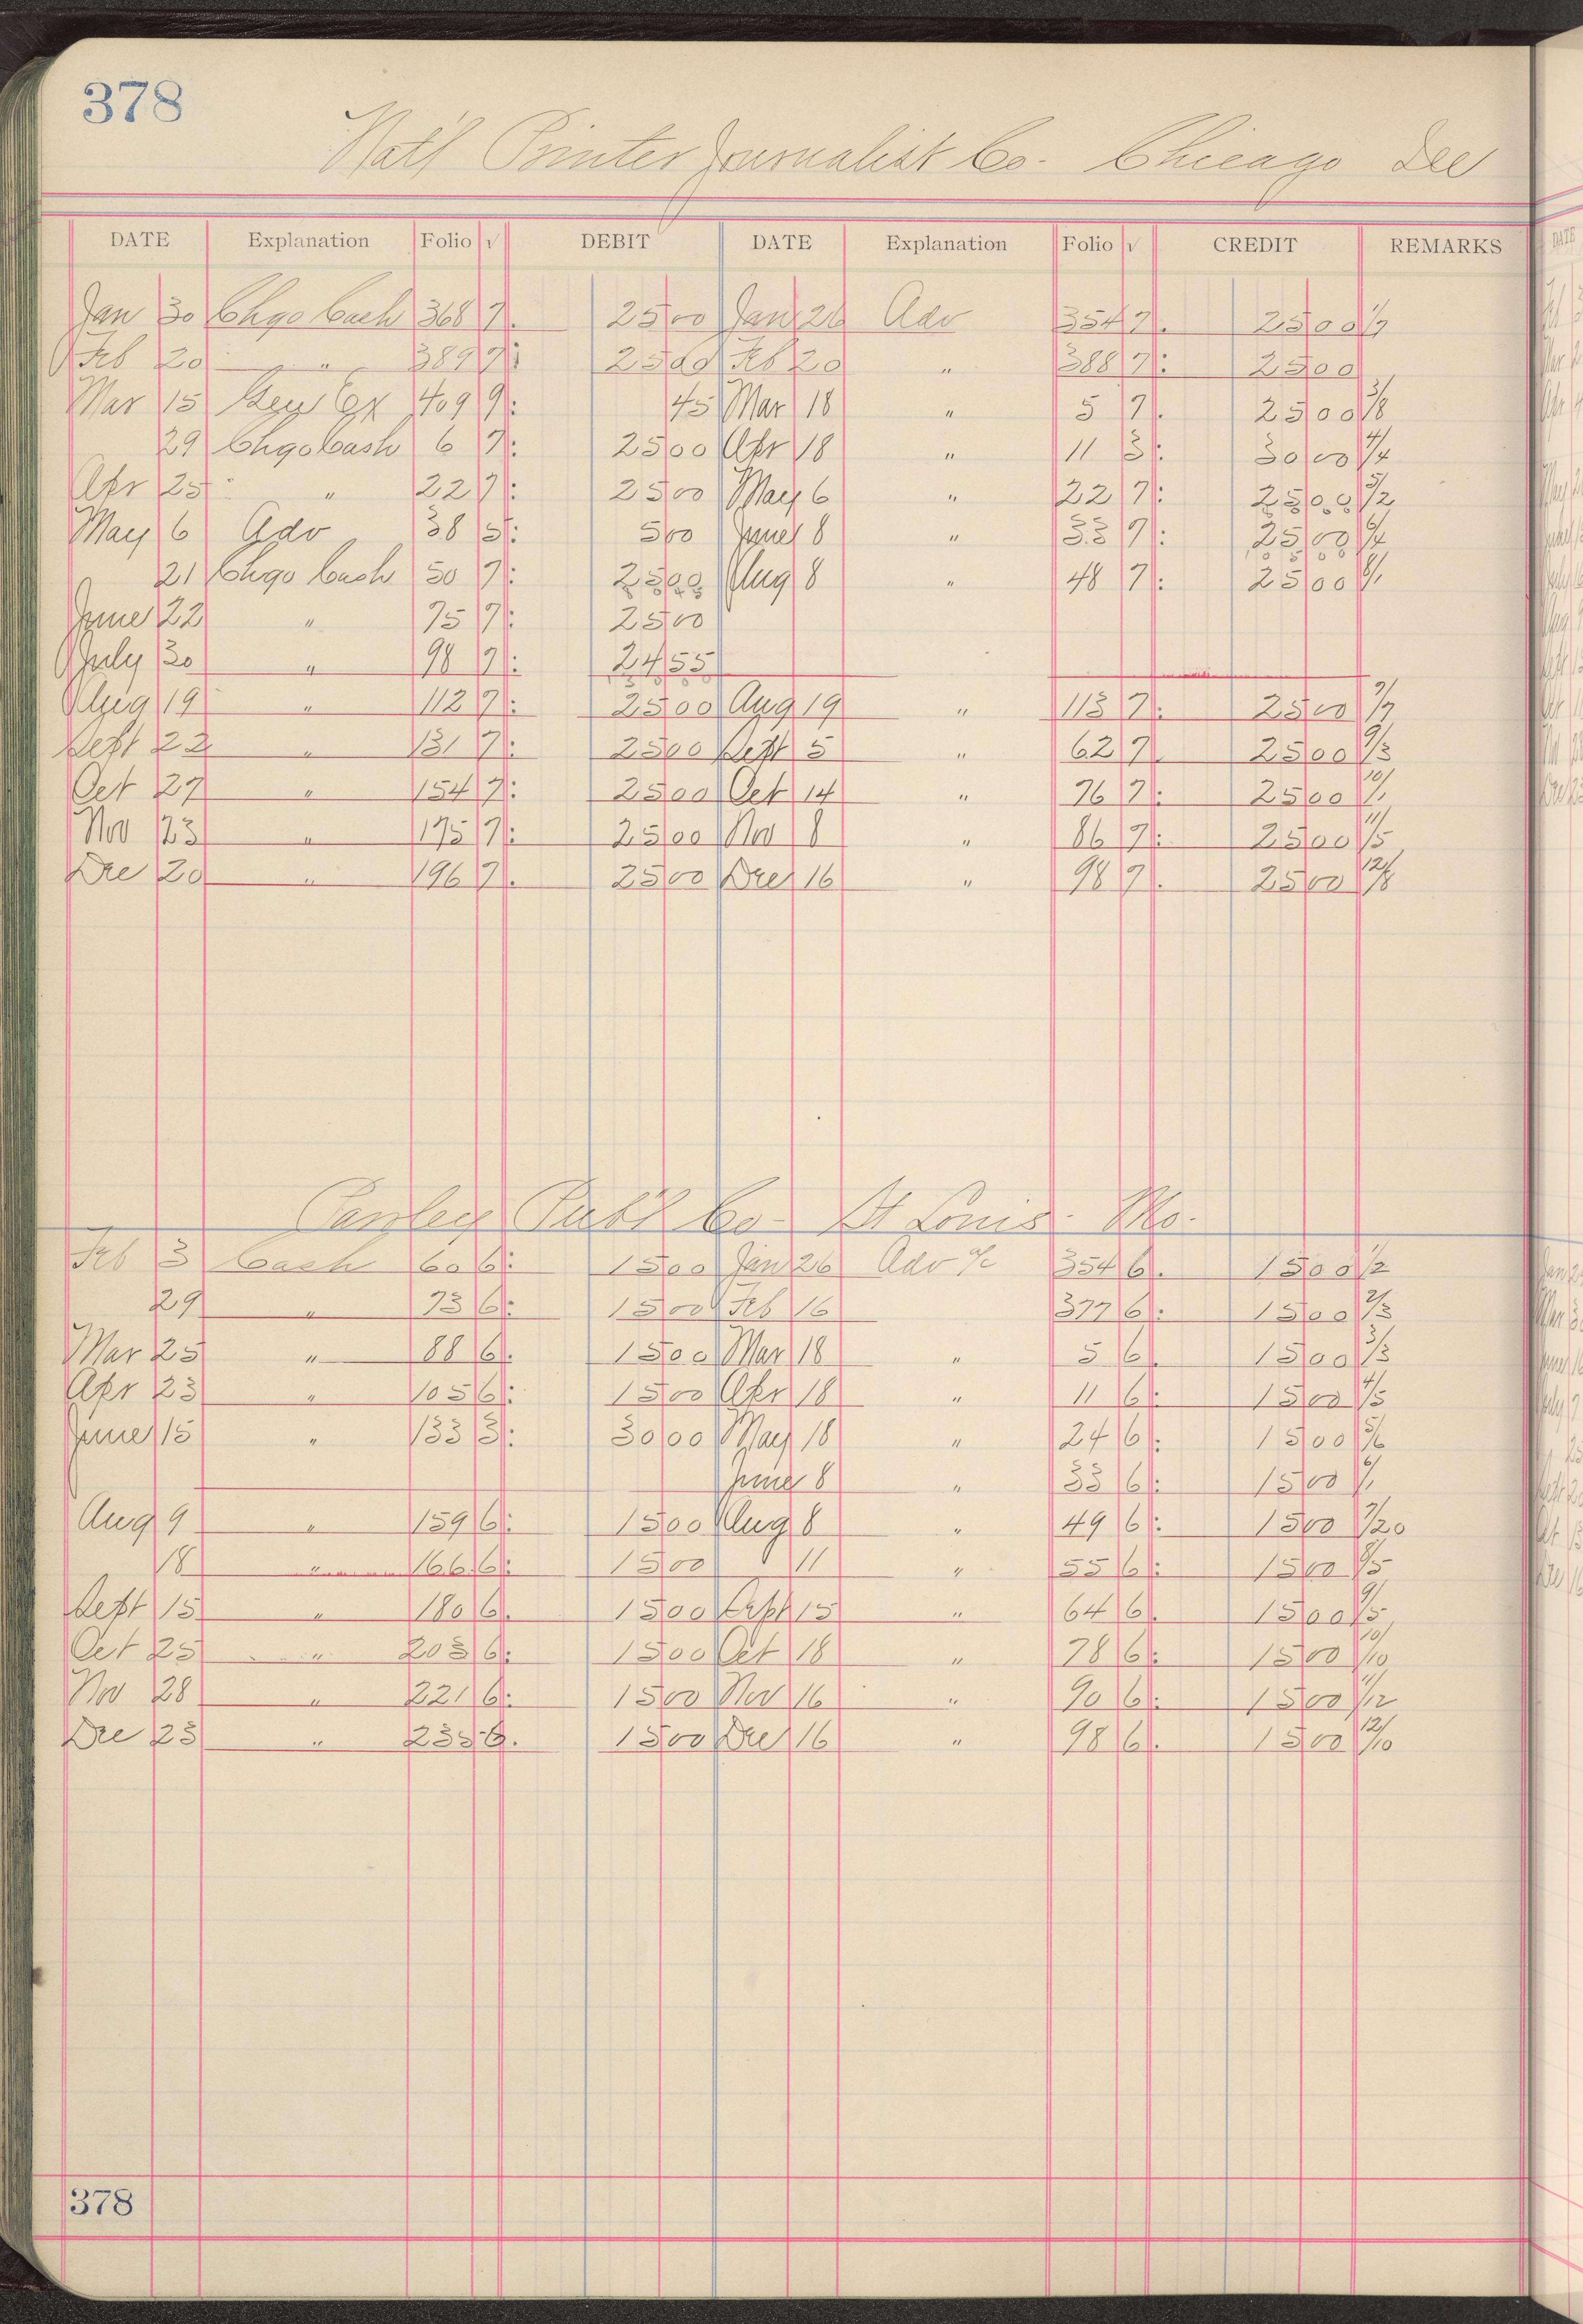 378
Nat'l Printer Journalist Co- Chicago Ill
DATE Explanation Folio √ DEBIT DATE Explanation Folio √ CREDIT REMARKS
Jan 30 Chgo Cash 368 7. 25 00 Jan 26 Adv 354 7. 25 00 1/7
Feb 20 " 389 7: 25 00 Feb 20 " 388 7: 25 00
Mar 15 Gen Ex 409 9: 45 Mar 18 " 5 7. 25 00 3/8
29 Chgo Cash 6 7: 25 00 Apr 18 " 11 3: 30 00 4/4
Apr 25 " 22 7: 25 00 May 6 " 22 7: 25 00 5/2
May 6 Adv 38 5: 5 00 June 8 " 33 7: 25 00 6/4
21 Chgo Cash 50 7: 25 00 Aug 8 " 48 7: 25 00 8/1
June 22 " 75 7: 25 00
July 30 " 98 7: 24 55
Aug 19 " 112 7: 25 00 Aug 19 " 113 7: 25 00 7/7
Sept 22 " 131 7: 25 00 Sept 5 " 62 7. 25 00 9/3
Oct 27 " 154 7: 25 00 Oct 14 " 76 7: 25 00 10/1
Nov 23 " 175 7: 25 00 Nov 8 " 86 7: 25 00 11/5
Dec 20 " 196 7. 25 00 Dec 16 " 98 7. 25 00 12/8
Pub'l Co- St Louis- Mo-
Feb 3 Cash 60 6: 15 00 Jan 26 Adv a/c 354 6. 15 00 1/2
29 " 73 6: 15 00 Feb 16 377 6: 15 00 2/3
Mar 25 " 88 6. 15 00 Mar 18 " 5 6. 15 00 3/3
Apr 23 " 105 6: 15 00 Apr 18 " 11 6: 15 00 4/5
June 15 " 133 3: 30 00 May 18 " 24 6: 15 00 5/6
June 8 " 33 6: 15 00 6/1
Aug 9 " 159 6: 15 00 Aug 8 " 49 6: 15 00 7/20
18 " 166 6: 15 00 11 " 55 6: 15 00 8/5
Sept 15 " 180 6. 15 00 Sept 15 " 64 6. 15 00 9/5
Oct 25 " 203 6: 15 00 Oct 18 " 78 6: 15 00 10/10
Nov 28 " 221 6: 15 00 Nov 16 " 90 6: 15 00 11/12
Dec 23 " 235 6. 15 00 Dec 16 " 98 6. 15 00 12/10
378